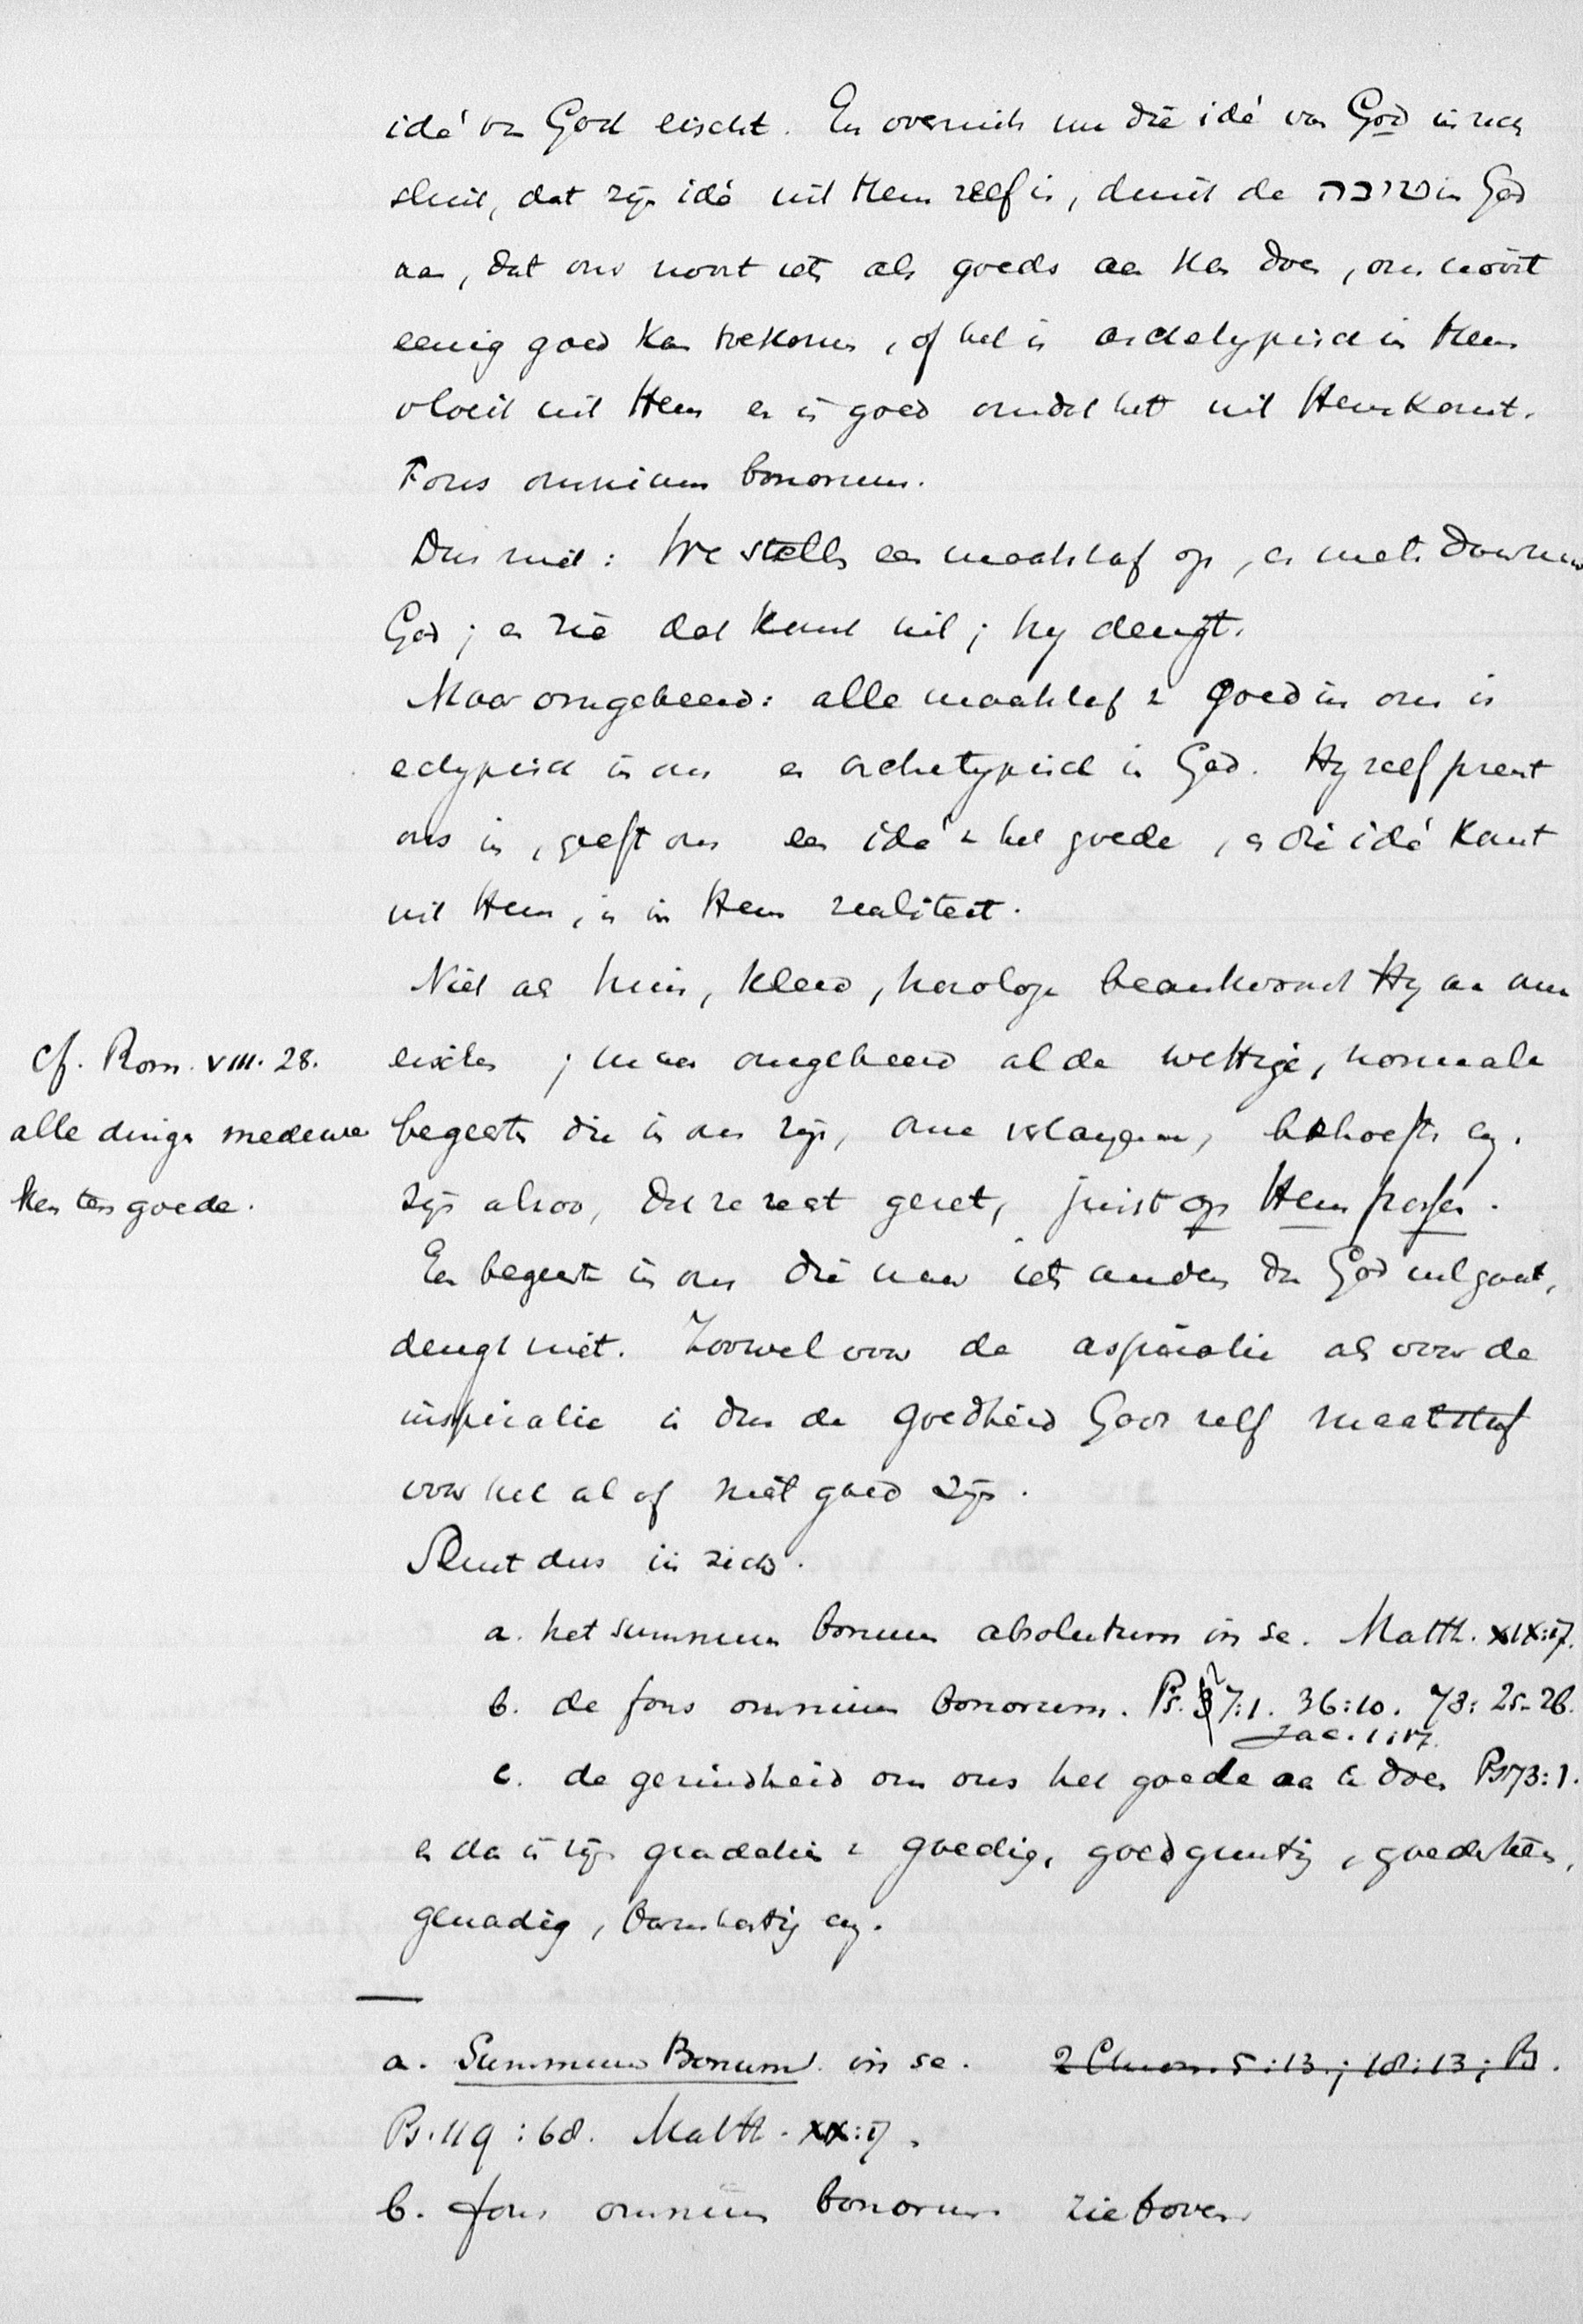 idé van God eischt. En overmits nu die idé van God in zich
sluit, dat zijn idé uit Hem zelf is, duidt de טובה in God
aan, dat ons nooit iets als goeds aan kan doen, ons nooit
eenig goed kan toekomen, of het is archetypisch in Hem
vloeit uit Hem en is goed omdat het uit Hem komt.
Fons omnium bonorum.
Dus niet: We stellen een maatstaf op, en meten daarmee
God; en zie dat komt uit; hy deugt.
Maar omgekeerd: alle maatstaf v goed in ons is
ectypisch in ons en archetypisch in God. Hy zelf prent
ons in, geeft ons een idé v het goede, en die idé komt
uit Hem, is in Hem realiteit.
Niet als huis, kleed, horloge beantwoord Hy aan onze
eischen; maar omgekeerd al de wettige, normale
cf. Rom. VIII. 28.
alle dingen medewer
ken ten goede.
begeerten die in ons zijn, onze verlangens, behoeften enz.
zijn alzoo, dat ze reeat gezet, juist op Hem passen.
Een begeerte in ons die naar iets anders dan God uitgaat,
deugt niet. Zoowel voor de aspiratie als voor de
inspiratie is dus de goedheid Gods zelf maatstaf
voor het al of niet goed zijn.
Sluit dus in zich.
a. het summum bonum absolutum in se. Matth. XIX:17.
b. de fons omnium bonorum. Ps. 27:1. 36:10. 73:25-26.
Jac. 1:17.
c. de gezindheid om ons het goede aan te doen Ps 73:1.
en da is zijn gradatie v goedig, goedgunstig, goedertieren,
genadig, barmhartig enz.
a. Summum Bonum in se. 2 Chron. 5:13; 18:13; Ps.
Ps. 119:68. Matth. XX:17.
b. fons omnium bonorum zie boven